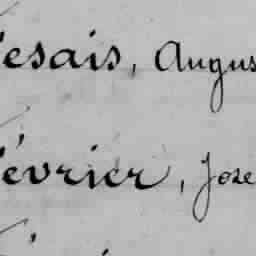 esais, Augus
évrier, Joze